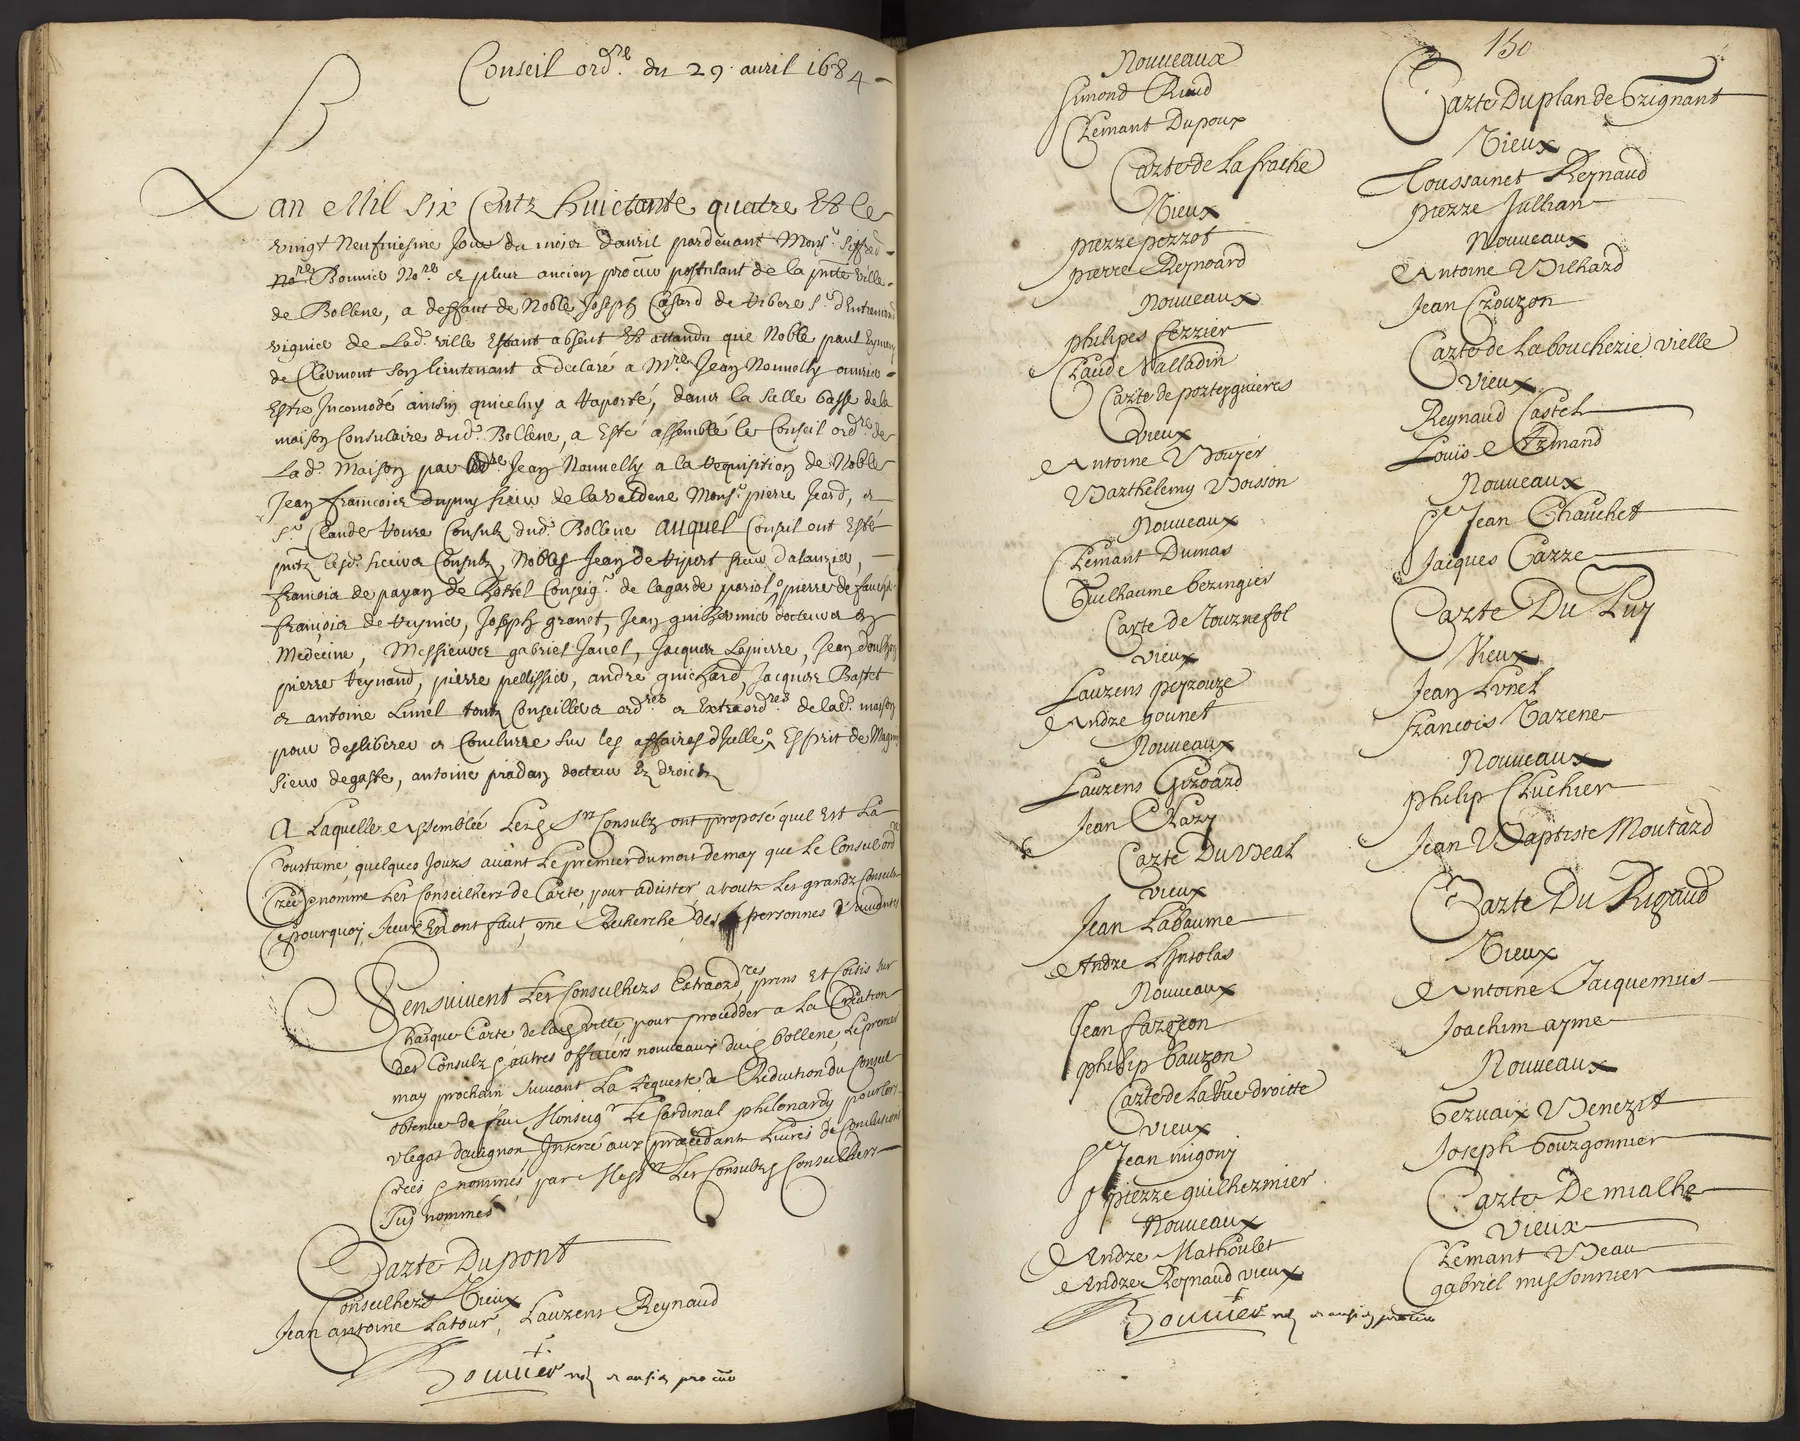 Conseil ord.re du 29 auril 1684
Lan Mil six Centz huictante quatre Et le
vingt Neufviesme Jour du mois dauril pardeuant Mons.r siffred
No.re Bonnier No.re et plus ancien procur postulant de la pnte ville
de Bollene, a deffaut de Noble Joseph de Ribere s.r d'Entremaux
viguier de Lad. ville Estant absent Et attandu que Noble paul Eymeny
de Clermont son lieutenant a declaré a M.re Jean Nouuelly
Estre Incomodé ainsin quicelluy a raporté, dans la salle basse de la
maison Consulaire dud. Bollene, a Esté assemblé le Conseil ord.re de
Lad. Maison par Jean Nouuelly a la requisition de Noble
Jean francois dupuy sieur de lavaldene Mons.r pierre Jeard, et
s.r Claude Roure Consulz dud. Bollene auquel Conseil ont Esté
pntz lesd. sieurs Consulz, Nobles Jean de Ripert sieur dalauzier,
francois de payan de Hostel Conseig.r de lagarde pariol pierre de
francois de Joseph granet, Jean guilhermier docteurs En
Medecine, Messieures gabriel Janel, Jacques Lapierre, Jean
pierre reynaud, pierre pellissier, andre guichard, Jacques Bastet
et antoine Lunel toutz Conseillers ord.res et Extraord.res de lad. maison
pour deslibérer et Conclurre sur les affaires d'Icelle, Esprit de Magnin
sieur degaste, antoine pradan docteur Ez droictz
A Laquelle Assemblée Lesd Srs Consulz ont proposé quil Est La
Coustume quelques Jours auant Le premier du mois de may que le Conseil ord.re
Crée & nomme Les Conseilhers de Carte, pour adcister a toutz Les grandz Conseilz
Cepourquoy, Iceux En ont faut, vne Recherche des personnes Suiuantes
Sensuiuent Les Conseilhers Extraord.res prins Et Coisis sur
Chasque Carte de lad Ville, pour procedder a La Creation
des Consulz & autres officiers nouueaux dud bollene, Le premier
may prochain suiuant La Requeste de Reduction du Conseil
obtenue de feu Monseigr Le Cardinal philonardy pour lors
vlegat dauignon, Inseree aux precedantz Liures de Conclusions
Crées & nommés par Messrs Les Consulz & Conseilhers
Sus nommés
Carte Du pont
Conseilhers Vieux
Jean antoine Latour, Laurens Reynaud
Bonnier no.re et ansien procur
Nouueaux
Simond Riud
Clemant Dupoux
Carte de La frache
Vieux
pierre perrot
pierre Reynoard
Nouueaux
philipes ferrier
Claude Valladin
Carte de portesguieres
vieux
Antoine Bouyer
Barthelemy Boisson
Nouueaux
Clemant Dumas
Guilhaume beringier
Carte de Tournefol
vieux
Laurens peyrouze
Andre gounet
Nouueaux
Laurens Giroard
Jean Chary
Carte Du Beal
vieux
Jean Labaume
Andre Lyntolas
Nouueaux
Jean fargeon
philip bauzon
Carte de La Rue droitte
vieux
sr Jean migony
sr pierre guilhermier
Nouueaux
Andre Mathoulet
Andre Reynaud vieux
Bonnier no.re et ansien procur
150
Carte Du plan de Grignant
Vieux
Toussainet Reynaud
pierre Jullian
Nouueaux
Antoine Bilhard
Jean Crouzon
Carte de La boucherie vielle
vieux
Reynaud Castel
Louis Armand
Nouueaux
sr Jean Chauchet
Jacques Carre
Carte Du Puy
Vieux
Jean Lunel
Francois Tarene
Nouueaux
philip Cluchier
Jean Baptiste Moutard
Carte Du Rigaud
Vieux
Antoine Jacquemus
Joachim ayme
Nouueaux
Geruaix Benezit
Joseph bourgonnier
Carte De mialhe
vieux
Clemant Beau
gabriel missonnier